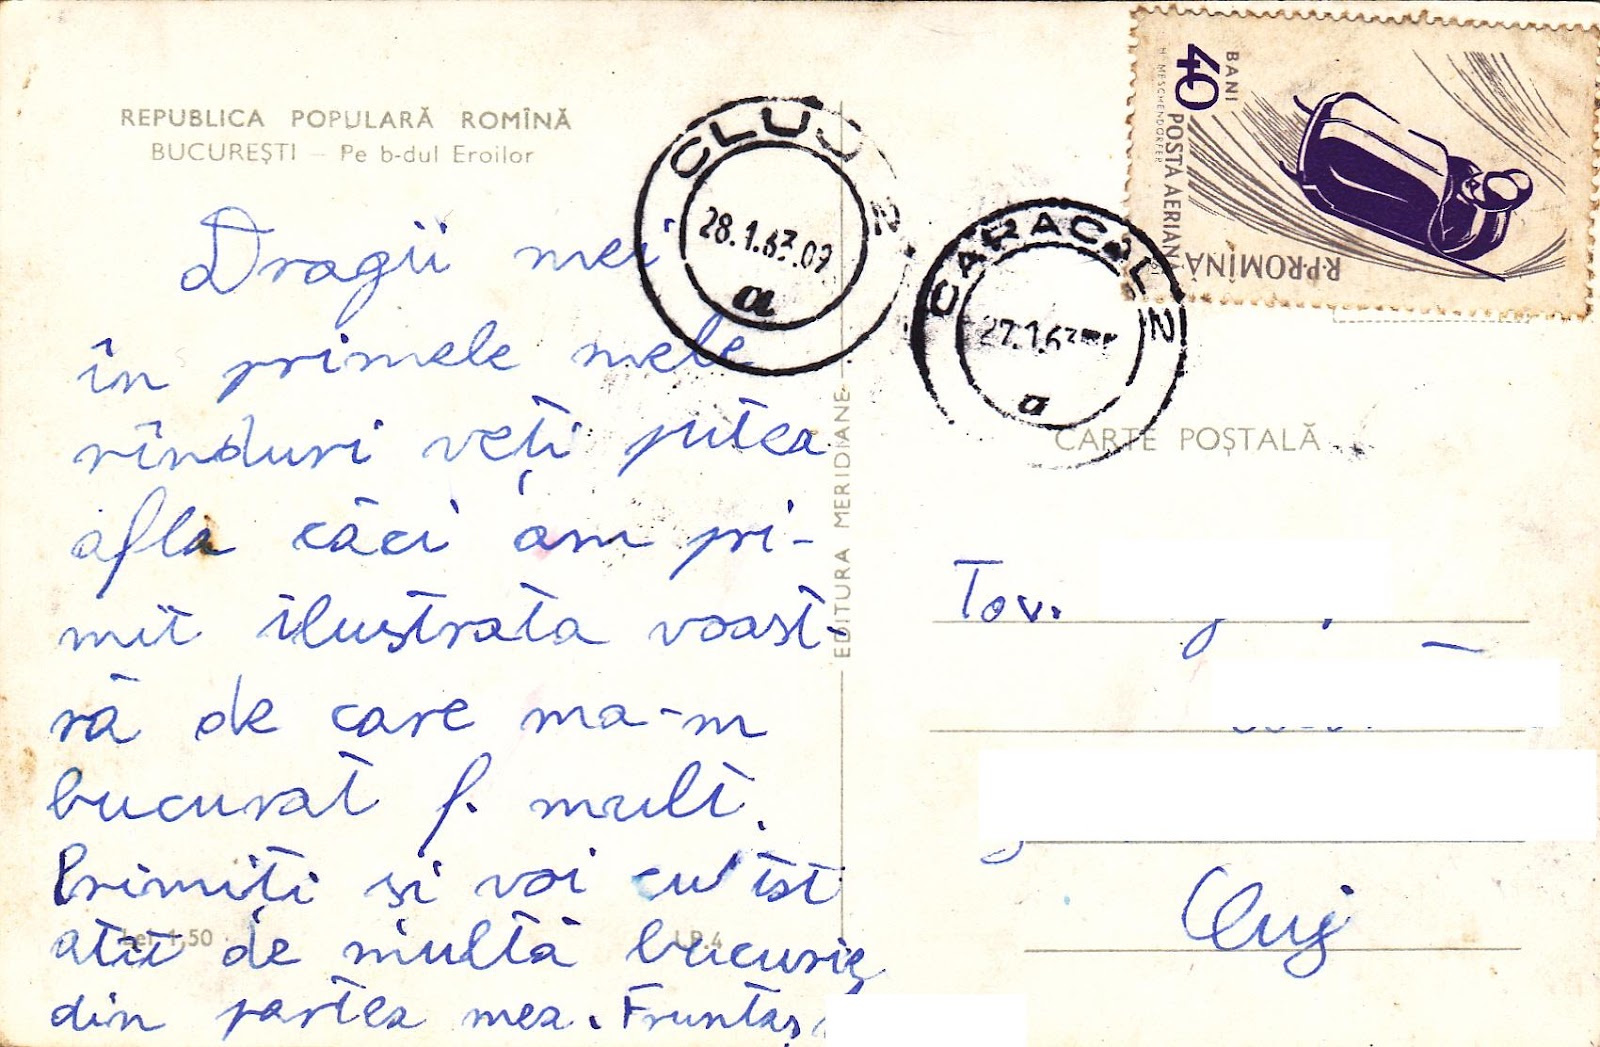 REPUBLICA POPULARĂ ROMÎNĂ
BUCUREȘTI – Pe b-dul Eroilor
Dragii mei
în primele mele
rînduri veți putea
afla căci am pri-
mit ilustrata voast-
ră de care ma-m
bucurat f. mult.
Primiți și voi
atît de multă bucurie
din partea mea. Fruntaș
Lei 1,50
I.P.4
EDITURA MERIDIANE
CLUJ 2
28.1.63.09
a
CARACAL 2
27.1.63
a
40 BANI
POSTA AERIANĂ
H. MESCHENDÖRFER
R.P.ROMÎNĂ
CARTE POȘTALĂ
Tov.
Cluj